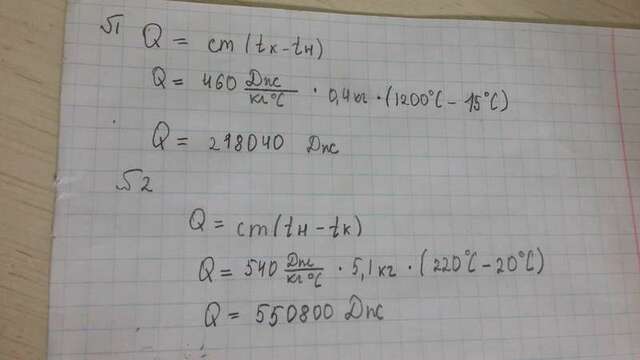 №1 Q = cm (tк - tн)
Q = 460 Дж/кг°C · 0,4кг · (1200°C - 15°C)
Q = 218040 Дж
№2
Q = cm (tн - tк)
Q = 540 Дж/кг°C · 5,1 кг · (220°C - 20°C)
Q = 550800 Дж